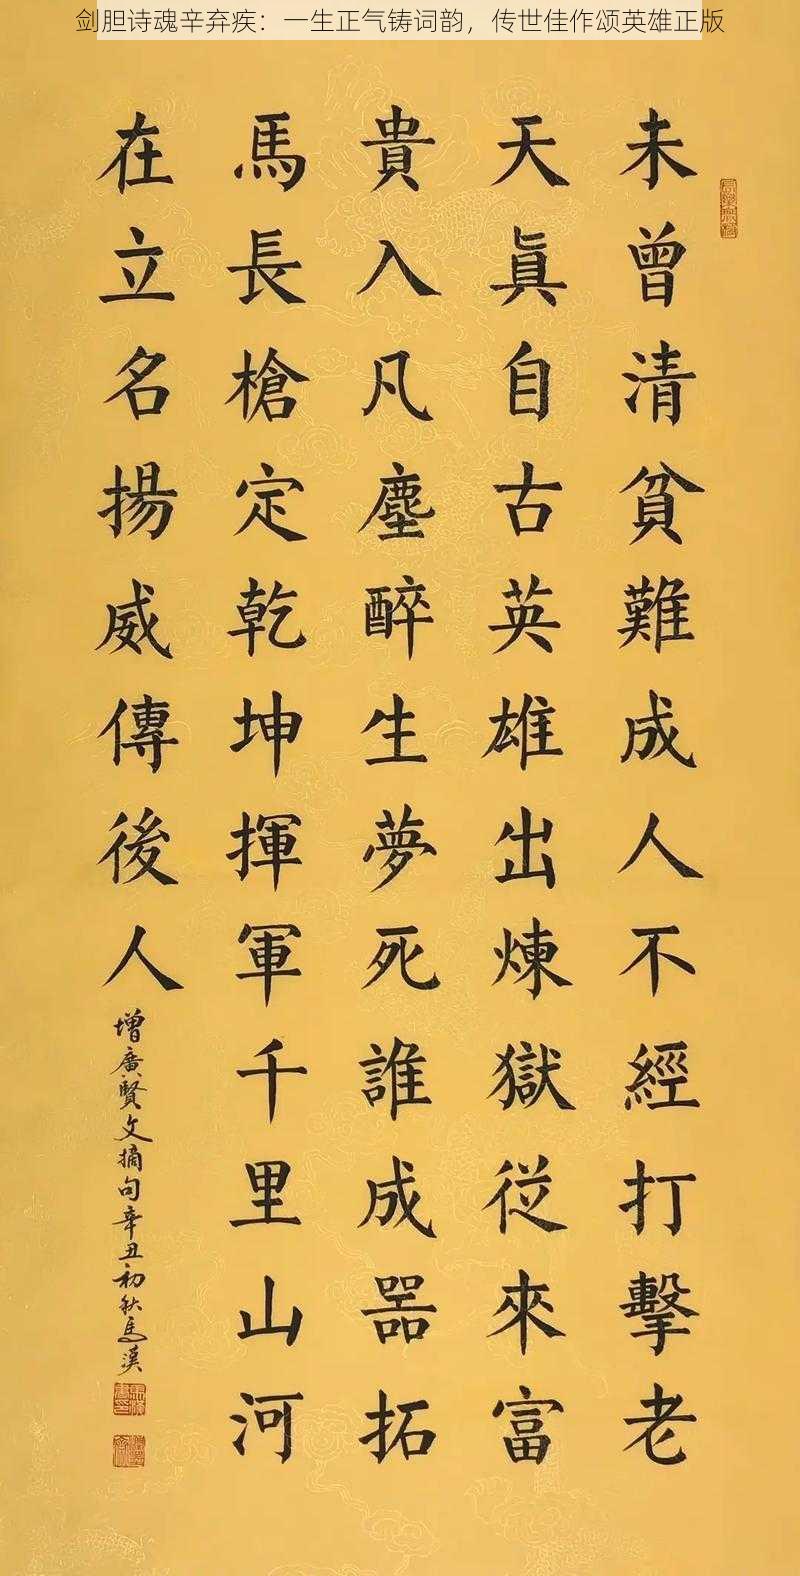 剑胆诗魂辛弃疾：一生正气铸词韵，传世佳作颂英雄正版
未曾清貧難成人不經打擊老
天眞自古英雄出煉獄從來富
貴入凡塵醉生夢死誰成器拓
馬長槍定乾坤揮軍千里山河
在立名揚威傳後人
增廣賢文摘句辛丑初秋馬漢